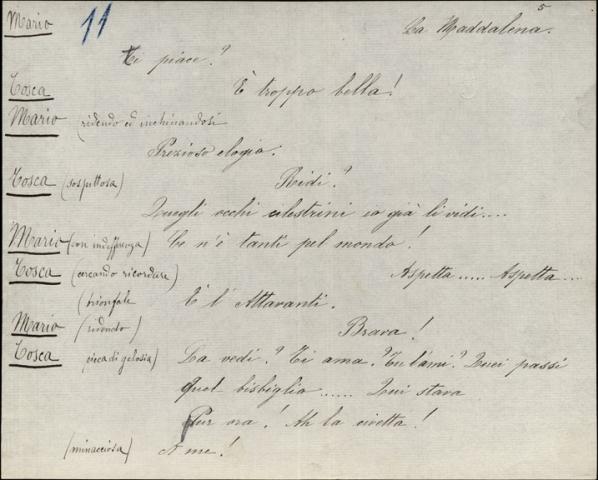 5
Mario 11 La Maddalena.
Te piace?
Tosca È troppo bella!
Mario (ridendo ed inchinandosi
Prezioso elogio.
Tosca (sospettosa) Ridi?
Quegli occhi cilestrini io già li vidi....
Mario (con indifferenza) Ce n'è tanti pel mondo!
Tosca (cercando ricordare) Aspetta..... Aspetta...
(trionfale È l'Attavanti.
Mario (ridendo) Brava!
Tosca gelosia) La vedi? Ti ama? Tu l'ami? Quei passi
Quel bisbiglio...... Qui stava
Pur ora! Ah la civetta!
(minacciosa) A me!